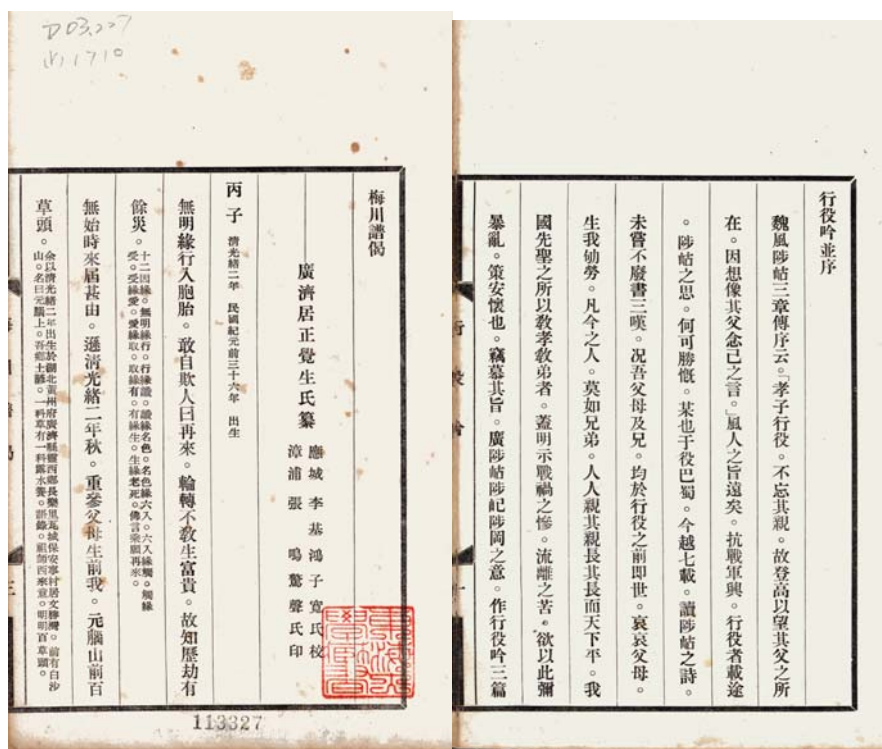 行役吟並序
魏風陟岵三章傳序云。「孝子行役。不忘其親。故登高以望其父之所
在。因想像其父念己之言。」風人之旨遠矣。抗戰軍興。行役者載途
。陟岵之思。何可勝慨。某也于役巴蜀。今越七載。讀陟岵之詩。
未嘗不廢書三嘆。况吾父母及兄。均於行役之前即世。哀哀父母。
生我劬勞。凡今之人。莫如兄弟。人人親其親長其長而天下平。我
國先聖之所以敎孝敎弟者。蓋明示戰禍之慘。流離之苦。欲以此彌
暴亂。策安懷也。竊慕其旨。廣陟岵陟屺陟岡之意。作行役吟三篇
行役吟
十
D03.227
1710
梅川譜偈
廣濟居正覺生氏纂
應城 李基鴻子寬氏校
漳浦 張 鳴 驚聲氏印
丙子 清光緒二年 民國紀元前三十六年 出生
無明緣行入胞胎。敢自欺人曰再來。輪轉不敎生富貴。故知歷劫有
餘災。十二因緣。無明緣行。行緣識。識緣名色。名色緣六入。六入緣觸。觸緣
受。受緣愛。愛緣取。取緣有。有緣生。生緣老死。傳言乘願再來。
無始時來屆甚由。遜清光緒二年秋。重參父母生前我。元腦山前百
草頭。余以清光緒二年出生於湖北黃州府廣濟縣靈西鄉長樂里瓦城保安寧村居文勝灣。前有白沙
山。名曰元腦上。吾鄉土諺。一科草有一科露水養。語錄。祖師西來意。明明百草頭。
梅川譜偈
三
113327